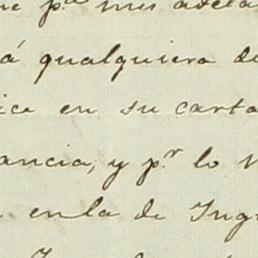 pª mis adela
á qualquiera de
ica en su carta
ancia, y pr lo
en la de Ing